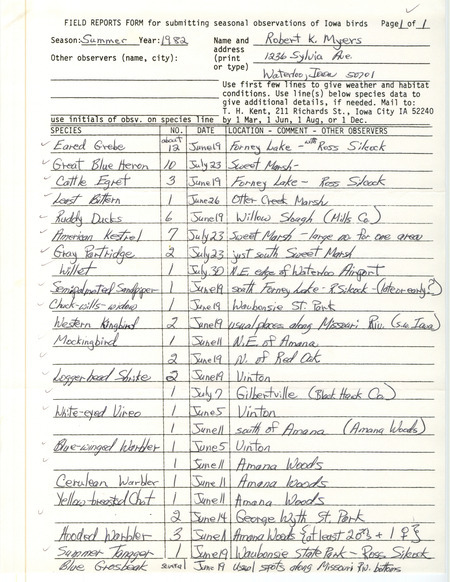 FIELD REPORTS FORM for submitting seasonal observations of Iowa birds Page 1 of 1
Season: Summer Year: 1982 Name and Robert K. Myers
Other observers (name, city): address 1236 Sylvia Ave.
(print
or type) Waterloo, Iowa 50701
Use first few lines to give weather and habitat
conditions. Use line(s) below species data to
give additional details, if needed. Mail to:
T. H. Kent, 211 Richards St., Iowa City IA 52240
use initials of obsv. on species line by 1 Mar, 1 Jun, 1 Aug, or 1 Dec.
SPECIES NO. DATE LOCATION - COMMENT - OTHER OBSERVERS
Eared Grebe about 12 June 19 Forney Lake - with Ross Silcock
Great Blue Heron 10 July 23 Sweet Marsh -
Cattle Egret 3 June 19 Forney Lake - Ross Silcock
Least Bittern 1 June 26 Otter Creek Marsh
Ruddy Ducks 6 June 19 Willow Slough (Mills Co.)
American Kestrel 7 July 23 Sweet Marsh - large no for one area
Gray Partridge 2 July 23 just south Sweet Marsh
Willet 1 July 30 N.E. edge of Waterloo Airport
Semipalmated Sandpiper 1 June 19 south Forney Lake - R Silcock - (late or early?)
Chuck-wills-widow 1 June 19 Waubonsie St. Park
Western Kingbird 2 June 19 usual places along Missouri Riv. (S.W. Iowa)
Mockingbird 1 June 11 N.E. of Amana
2 June 19 N. of Red Oak
Loggerhead Shrike 2 June 19 Vinton
1 July 7 Gilbertville (Black Hawk Co.)
White-eyed Vireo 1 June 5 Vinton
1 June 11 south of Amana (Amana Woods)
Blue-winged Warbler 1 June 5 Vinton
1 June 11 Amana Woods
Cerulean Warbler 1 June 11 Amana Woods
Yellow-breasted Chat 1 June 11 Amana Woods
2 June 14 George Wyth St. Park
Hooded Warbler 3 June 11 Amana Woods {at least 2♂s + 1♀}
Summer Tanager 1 June 19 Waubonsie State Park - Ross Silcock
Blue Grosbeak several June 19 usual spots along Missouri Riv. bottoms